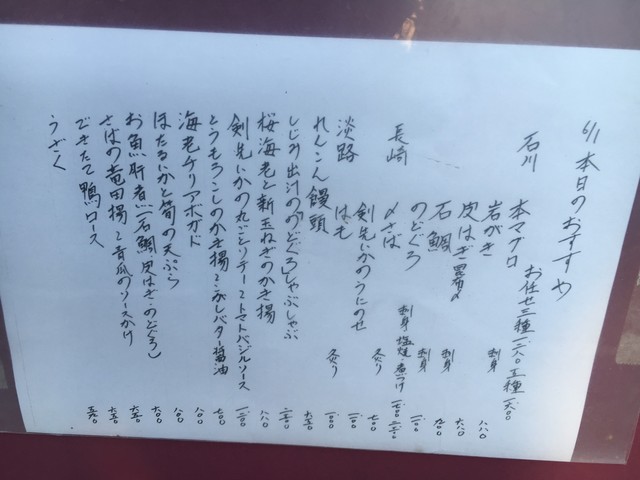 6/1 本日のおすすめ
お任せ三種一三八〇 五種一六〇〇
石川 本マグロ
岩がき 刺身 八八〇
皮はぎ昆布〆 六八〇
石鯛 刺身 九〇〇
のどぐろ 刺身
長崎 〆さば 炙り 七〇〇
剣先いかのうにのせ
淡路 はも 炙り
れんこん饅頭
しじみ出汁の「のどぐろ」しゃぶしゃぶ
桜海老と新玉ねぎのかき揚 八八〇
剣先いかの丸ごとソテー トマトバジルソース
とうもろこしのかき揚 こがしバター醤油 七〇〇
海老チリアボガド 八〇〇
ほたるいかと筍の天ぷら 八〇〇
お魚肝煮(石鯛・皮はぎ・のどぐろ) 七〇〇
さばの竜田揚 青瓜のソースかけ 六五〇
できたて鴨ロース 六五〇
うざく